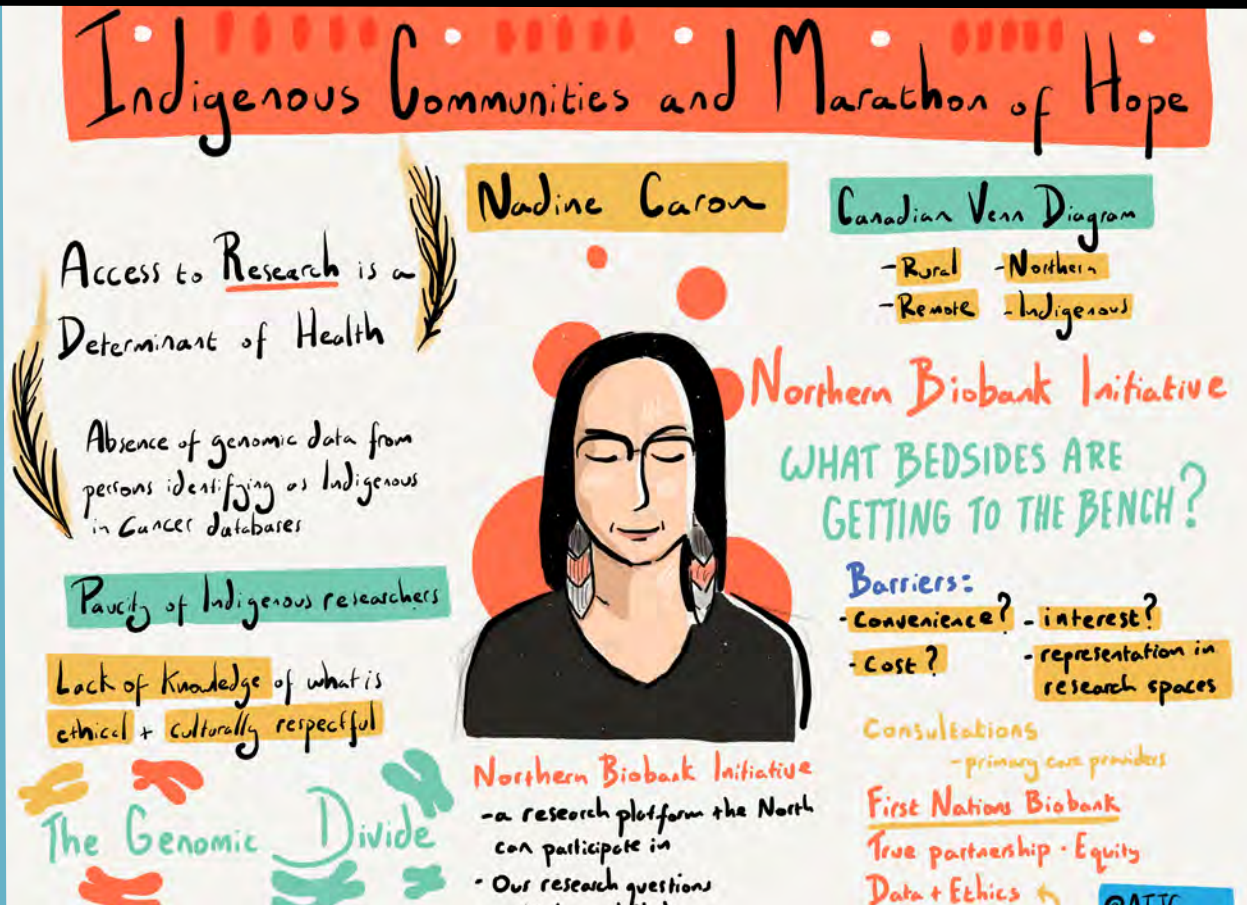 Indigenous Communities and Marathon of Hope
Nadine Caron
Access to Research is a
Determinant of Health
Absence of genomic data from
persons identifying as Indigenous
in Cancer databases
Paucity of Indigenous researchers
Lack of Knowledge of what is
ethical + culturally respectful
The Genomic Divide
Northern Biobank Initiative
- a research platform the North
can participate in
- Our research questions
Canadian Venn Diagram
- Rural - Northern
- Remote - Indigenous
Northern Biobank Initiative
WHAT BEDSIDES ARE
GETTING TO THE BENCH?
Barriers:
- Convenience? - interest?
- Cost? - representation in
research spaces
Consultations
- primary care providers
First Nations Biobank
True partnership · Equity
Data + Ethics